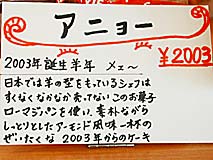 アニョー
¥2003
2003年誕生羊年 メェ〜
日本では羊の型をもっているシェフは
すくなくなかなか売ってないこのお菓子
ローマジパンを使い、素朴ながら
しっとりとしたアーモンド風味一杯の
ぜいたくな 2003年からのケーキ